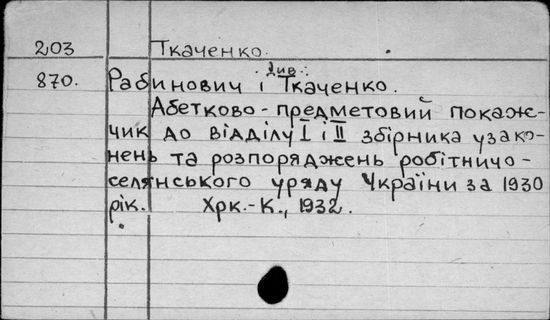 203 Ткаченко.
Див.:
870. Рабинович і Ткаченко.
Абетково-предметовий покаж-
чик до відділу I і II збірника узако-
нень та розпоряджень робітничо-
селянського уряду України за 1930
рік. Хрк.-К., 1932.